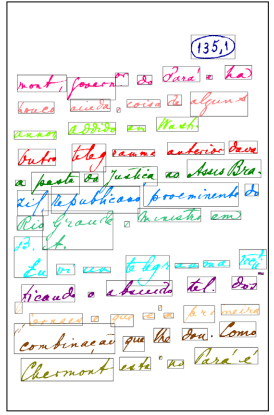 135,1
mont, governor do Pará e ha
houco ainda, coisa de alguns
annos addido em Wash.
Outro telegramma anterior dava
a pasta da Justica ao Assis Bra-
zil republicano proeminente do
Rio Grande, ministro em
B. A.
Eu vi um telegramma
ficando o absurdo tel. dos
que é a primeira
combinação que lhe dou. Como
Chermont está no Pará é